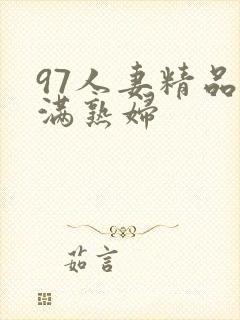 97人妻精品
满熟妇
茹言